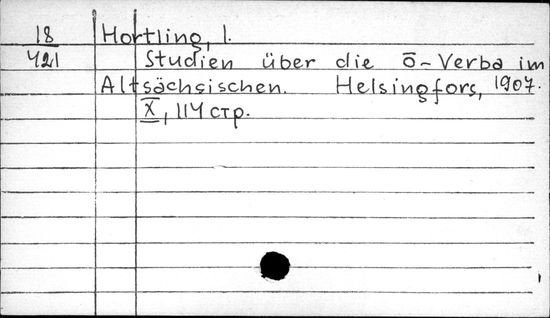 18 Hortling, I.
421 Studien über die ō-Verba im
Altsächsischen. Helsingfors, 1907.
X, 114 стр.